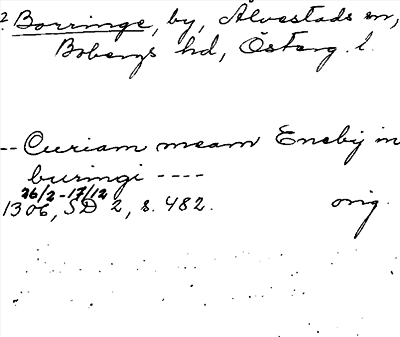 ? Borringe, by, Älvestads sn,
Bobergs hd, Österg. l.
-- Curiam meam Eneby in
buringi ----
26/2-17/12
1306, SD 2, s. 482. orig.